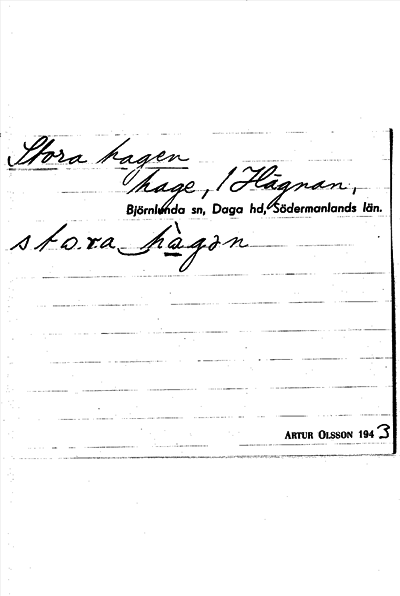 Stora hagen
hage, 1 Hägnan,
Björnlunda sn, Daga hd, Södermanlands län.
stω.ra hàgən
ARTUR OLSSON 1943